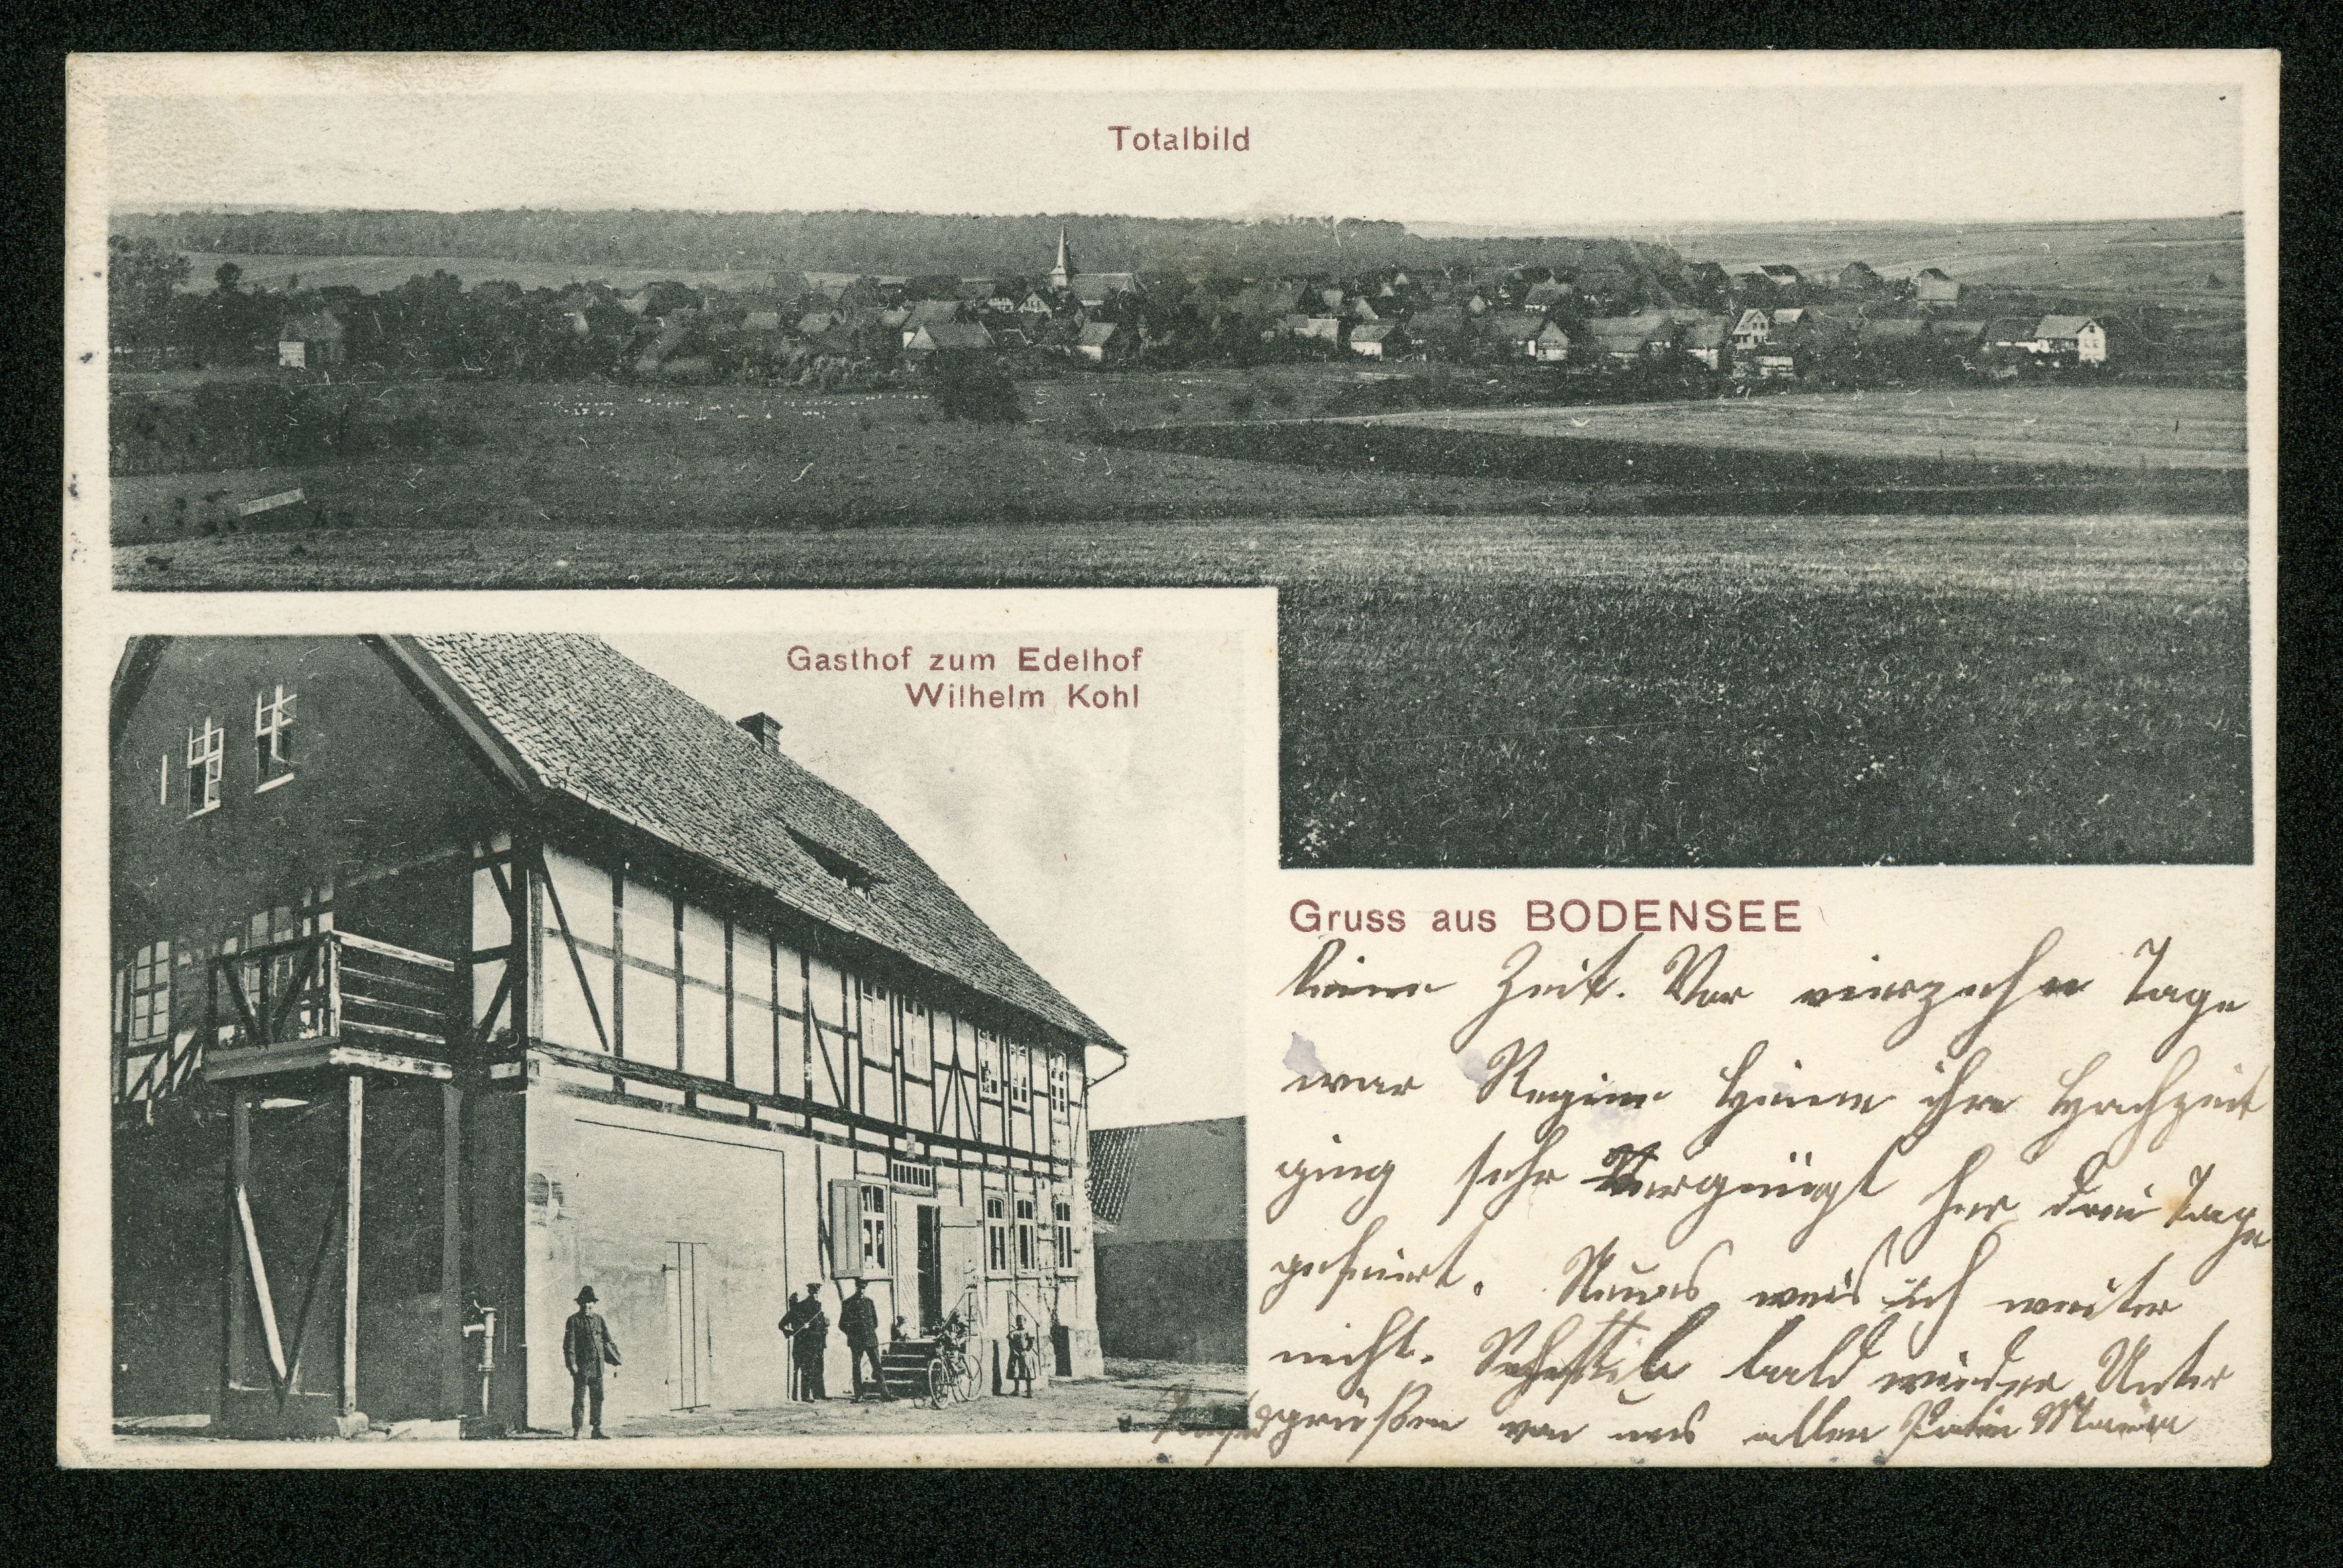 Totalbild
Gasthof zum Edelhof
Wilhelm Kohl
Gruss aus BODENSEE
keine Zeit. Vor vierzehn Tage
war Regine ihre Hochzeit
ging sehr Vergnügt her drei Tage
gefeiert. Neues weis ich weiter
nicht. bald wieder Unter
grüßen von uns allen Maria